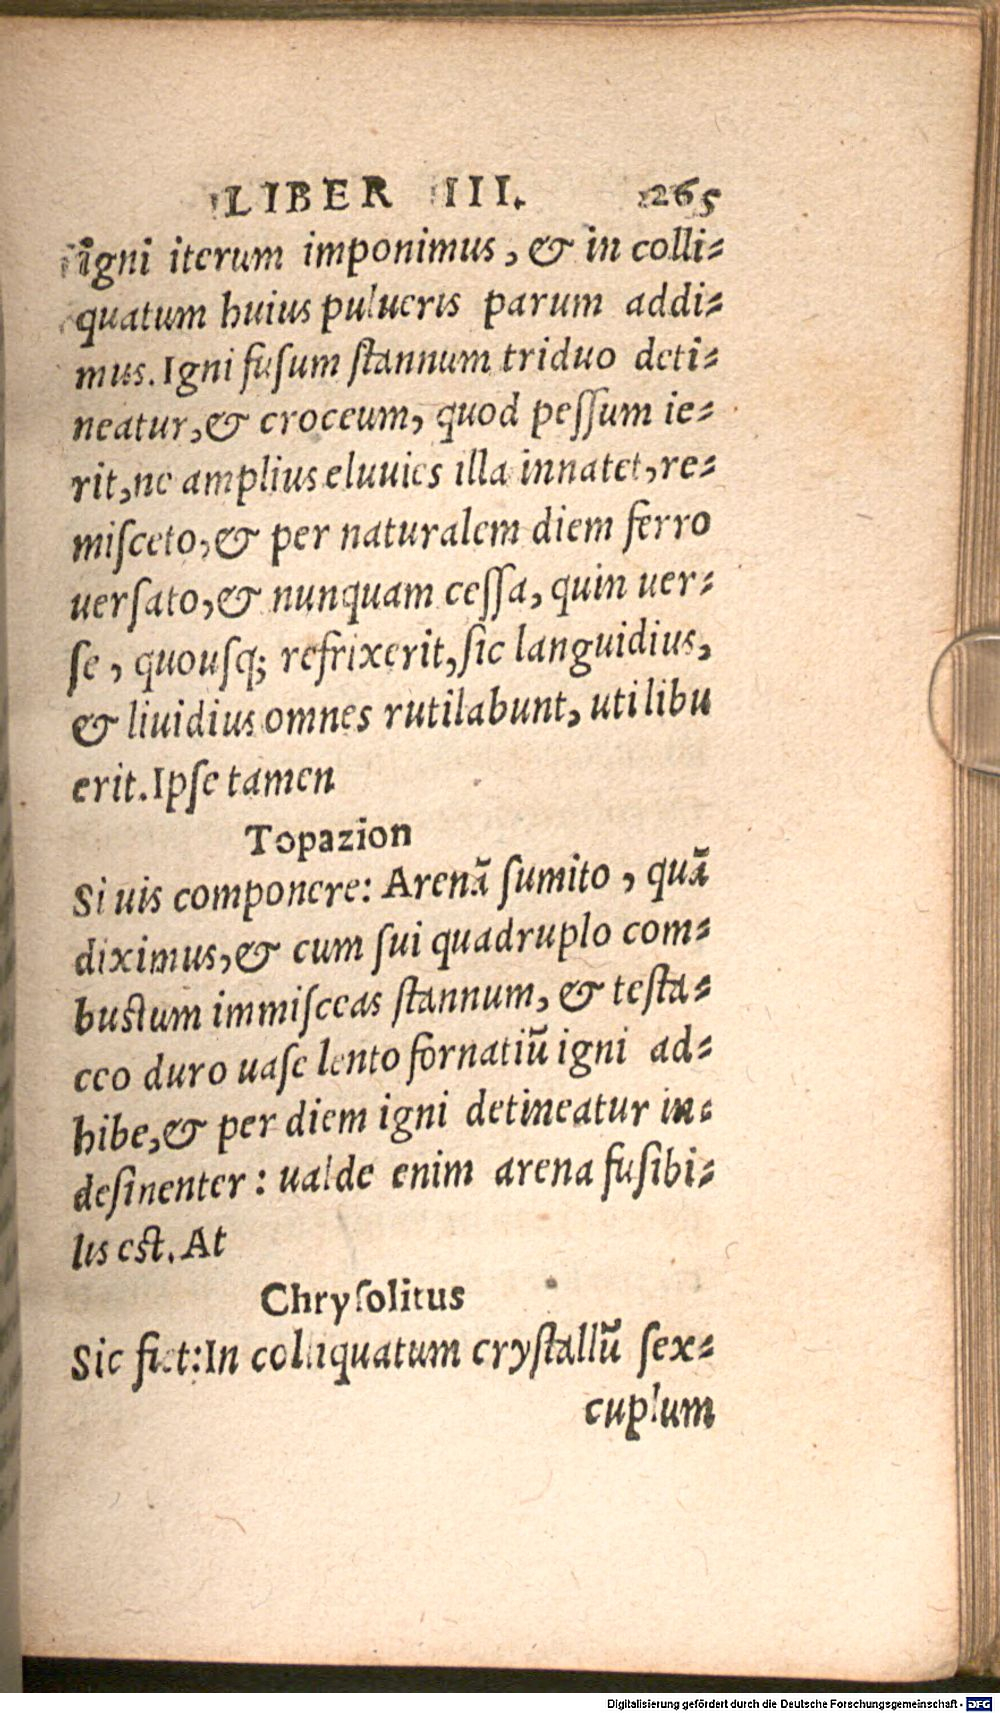 LIBER III. 265
igni iterum imponimus, & in colli-
quatum huius pulueris parum addi-
mus. Igni fusum stannum triduo deti-
neatur, & croceum, quod pessum ie-
rit, ne amplius eluuies illa innatet, re-
misceto, & per naturalem diem ferro
uersato, & nunquam cessa, quin uer-
se, quousq; refrixerit, sic languidius,
& liuidius omnes rutilabunt, uti libu
erit. Ipse tamen
Topazion
Si uis componere: Arenā sumito, quā
diximus, & cum sui quadruplo com-
bustum immisceas stannum, & testa-
ceo duro uase lento fornatiū igni ad-
hibe, & per diem igni detineatur in-
desinenter: ualde enim arena fusibi-
lis est. At
Chrysolitus
Sic fiet: In colliquatum crystallū sex-
cuplum
Digitalisierung gefördert durch die Deutsche Forschungsgemeinschaft - DFG